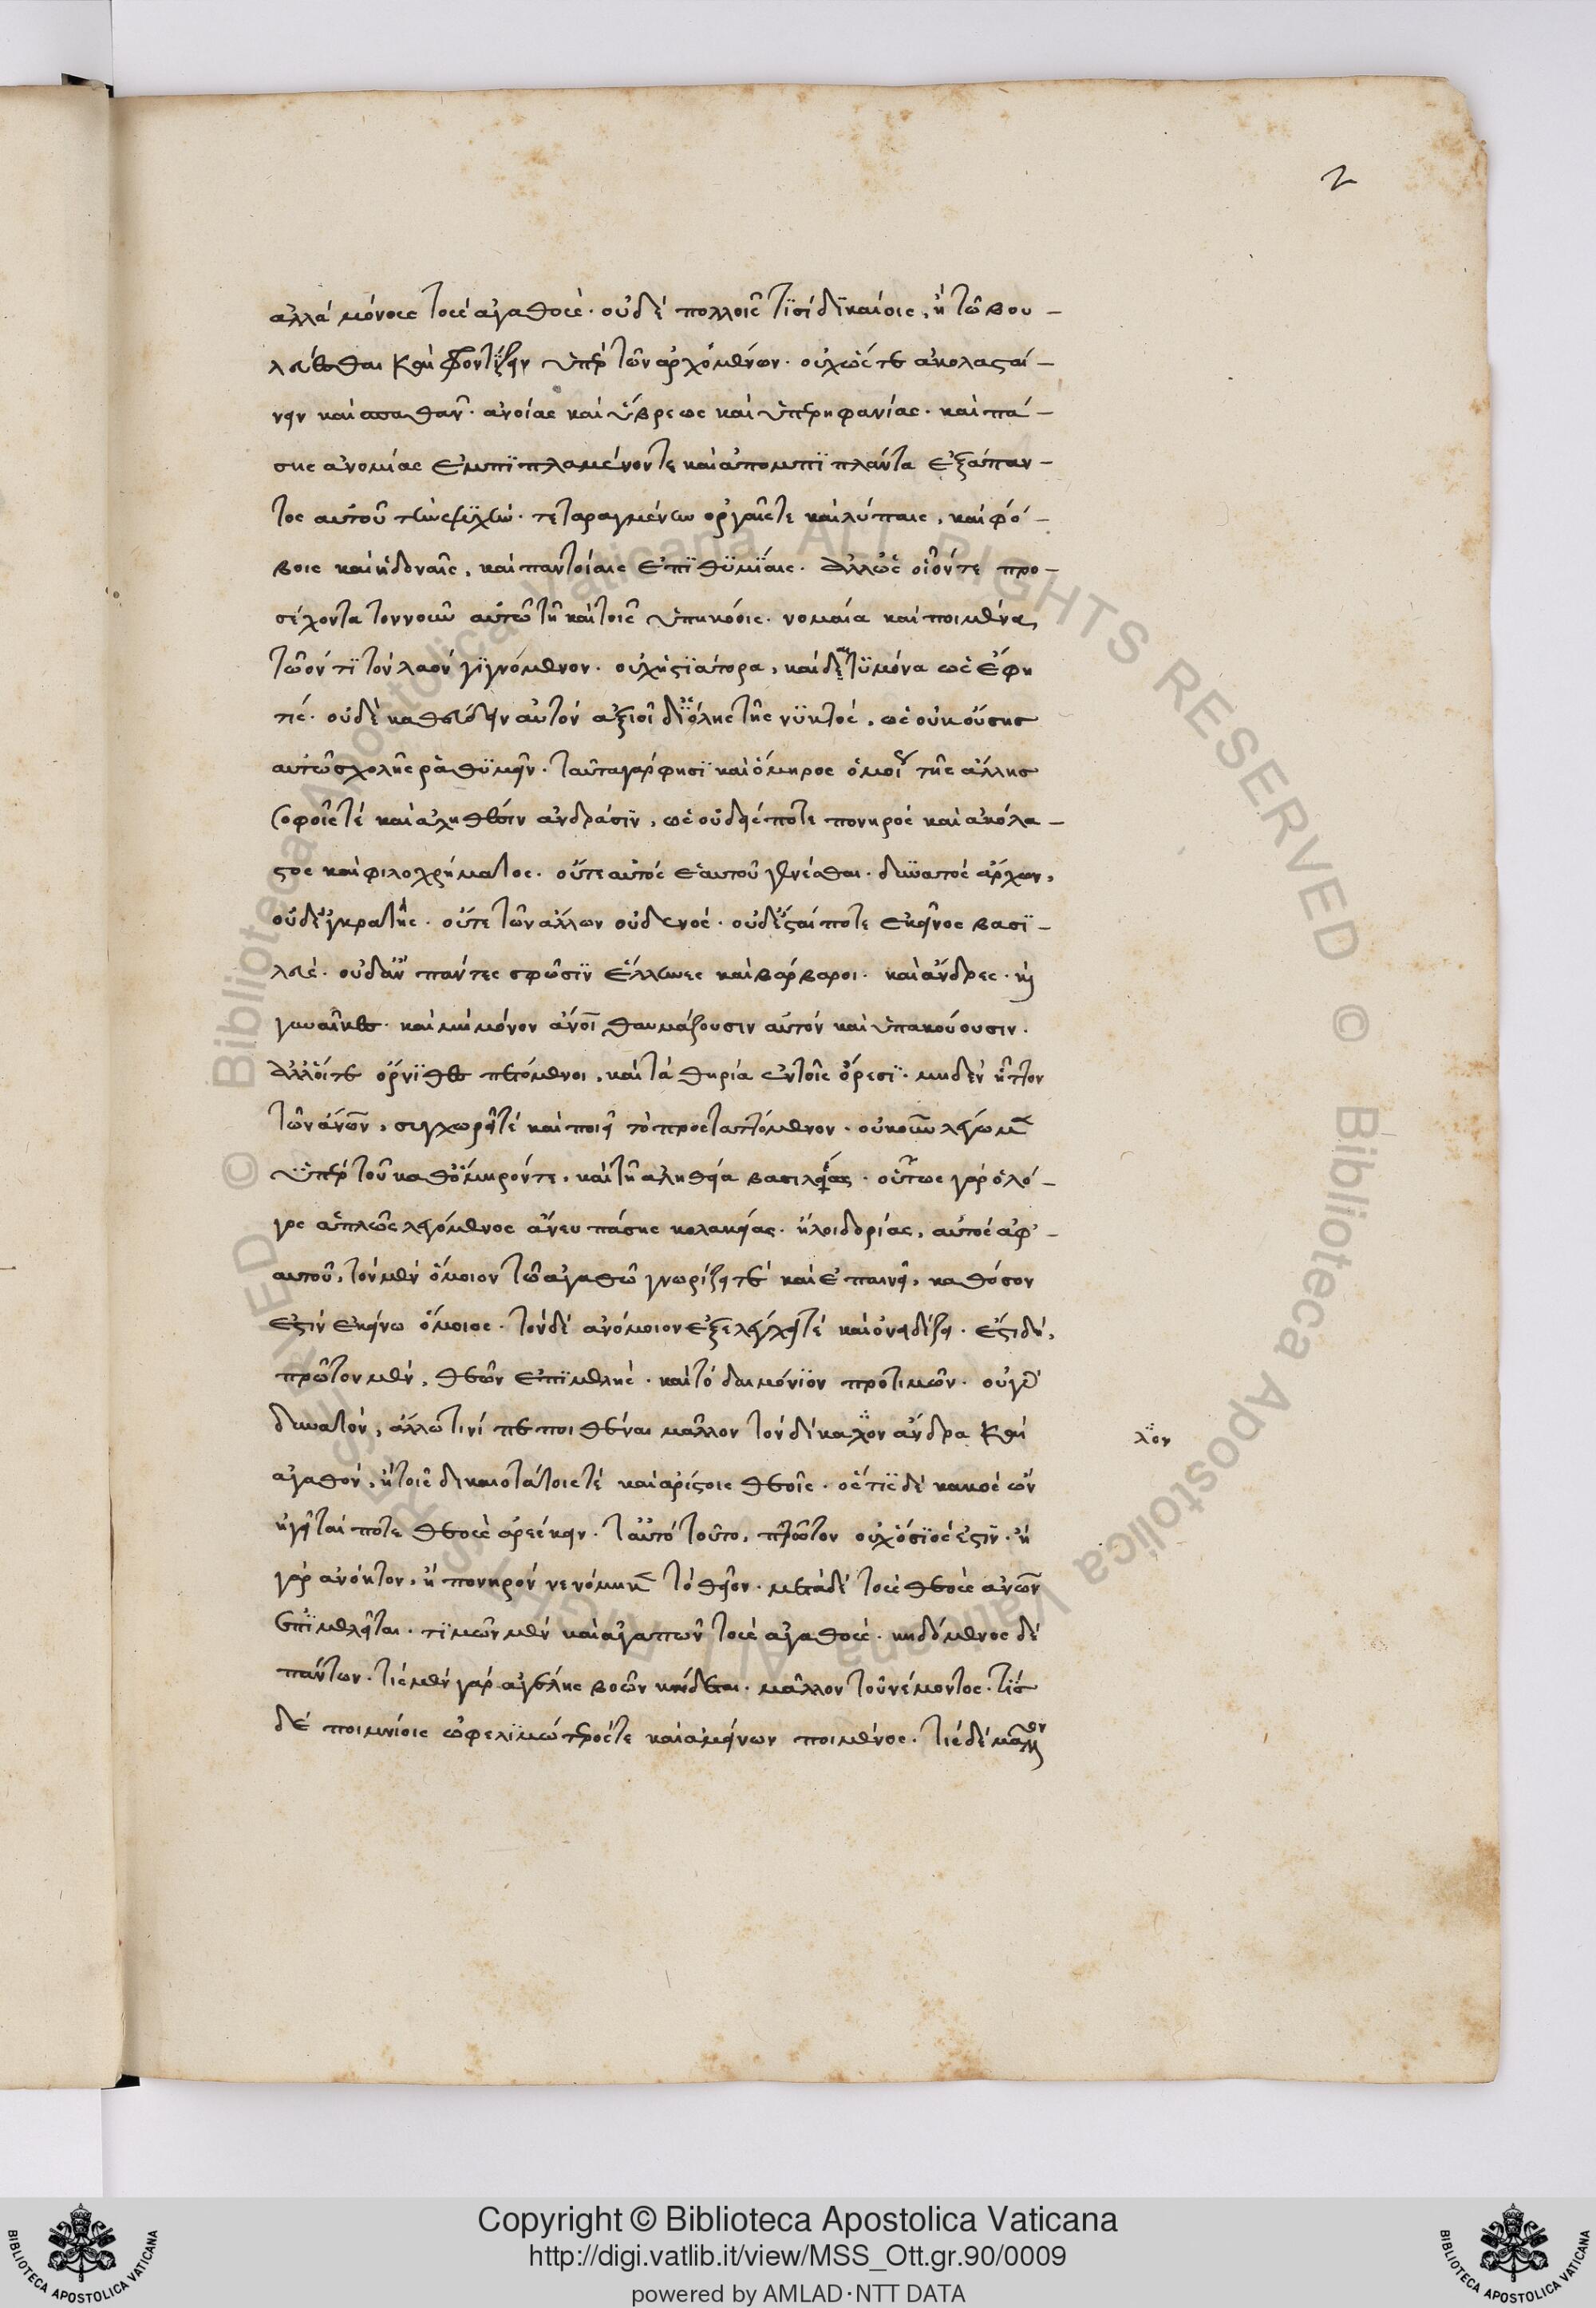 2
ἀλλὰ μόνους τοὺς ἀγαθούς· οὐδὲ πολλοῖς τισὶ δικαίοις, ἢ τῶ βου-
λεύεσθαι καὶ φροντίζειν ὑπὲρ τῶν ἀρχομένων· οὐχ ὥστε ἀκολασταί-
νειν καὶ σπαθᾶν· ἀνοίας καὶ ὕβρεως καὶ ὑπερηφανίας· καὶ πά-
σης ἀνομίας ἐμπιπλαμένον τε καὶ ἀπομπιπλάντα ἐξάπαν-
τος αὑτοῦ τὴν ψυχὴν· τεταραγμένην ὀργαῖς τε καὶ λύπαις, καὶ φό-
βοις καὶ ἡδοναῖς, καὶ παντοίαις ἐπιθυμίαις· ἀλλ' ὡς οἷόν τε προ-
σέχοντα τὸν νοῦν αὑτῶ τῆ καὶ τοῖς ὑπηκόοις· νομαία καὶ ποιμένα
τῶ ὄντι τὸν λαὸν γιγνόμενον· οὐχ ἑστιάτορα, καὶ δαιτυμόνα ὡς ἔφη
τις· οὐδὲ καθεύδειν αὐτὸν ἀξιοῖ δι' ὅλης τῆς νυκτός, ὡς οὐκ οὔσης
αὐτῶ σχολῆς ῥαθυμεῖν· ταῦτα γάρ φησι καὶ ὅμηρος ὁμοίως τῆς ἄλλης
σοφοῖς τε καὶ ἀληθέσιν ἀνδράσιν, ὡς οὐδείς ποτε πονηρὸς καὶ ἀκόλα-
στος καὶ φιλοχρήματος· οὔτε αὐτὸς ἑαυτοῦ γενέσθαι· δυνατὸς ἄρχων,
οὐδ' ἐγκρατής· οὔτε τῶν ἄλλων οὐδενός· οὐδ' ἔσται ποτε ἐκεῖνος βασι-
λεύς· οὐδ' ἂν πάντες σφῶσιν ἕλληνες καὶ βάρβαροι· καὶ ἄνδρες· καὶ
γυναῖκες· καὶ μὴ μόνον ἄνοι θαυμάζουσιν αὐτὸν καὶ ὑπακούουσιν·
ἀλλ' οἵτε ὄρνιθες πετόμενοι, καὶ τὰ θηρία ἐν τοῖς ὄρεσι· μηδὲν ἧττον
τῶν ἀνῶν, συγχωρεῖ τε καὶ ποιεῖ τὸ προσταττόμενον· οὐκοῦν λέγωμεν
ὑπὲρ τοῦ καθ' ὅμηρόν τε, καὶ τῆ ἀληθεία βασιλείας· οὗτος γὰρ ὁ λό-
γος ἁπλῶς λεγόμενος ἄνευ πάσης κολακείας· ἢ λοιδορίας, αὐτὸς ἀφ'
αὑτοῦ, τὸν μὲν ὅμοιον τῶ ἀγαθῶ γνωρίζει τὲ καὶ ἐπαινεῖ, καθόσον
ἐστὶν ἐκείνω ὅμοιος· τὸν δὲ ἀνόμοιον ἐξελέγχει τὲ καὶ ὀνειδίζει· ἔστι δὴ,
πρῶτον μὲν, θεῶν ἐπιμελής· καὶ τὸ δαιμόνιον προτιμῶν· οὐ γὰρ
δυνατὸν, ἄλλω τινὶ πεποιθέναι μᾶλλον τὸν δίκαιον ἄνδρα καὶ
λον
ἀγαθὸν, ἢ τοῖς δικαιοτάτοις τὲ καὶ ἀρίστοις θεοῖς· ὅστις δὲ κακὸς ὢν
ἡγεῖταί ποτε θεοὺς ἀρέσκειν· ταὐτὸ τοῦτο, πρῶτον οὐχ ὅσιός ἐστιν· ἢ
γὰρ ἀνόητον, ἢ πονηρὸν νενόμικε τὸ θεῖον· μετὰ δὲ τοὺς θεοὺς ἀνῶν
ἐπιμελεῖται· τιμῶν μὲν καὶ ἀγαπῶν τοὺς ἀγαθούς· κηδόμενος δὲ
πάντων· τίς μὲν γὰρ ἀγέλης βοῶν κήδεται· μᾶλλον τοῦ νέμοντος· τίς
δὲ ποιμνίοις ὠφελιμώτερός τε καὶ ἀμείνων ποιμένος· τίς δὲ μᾶλλον